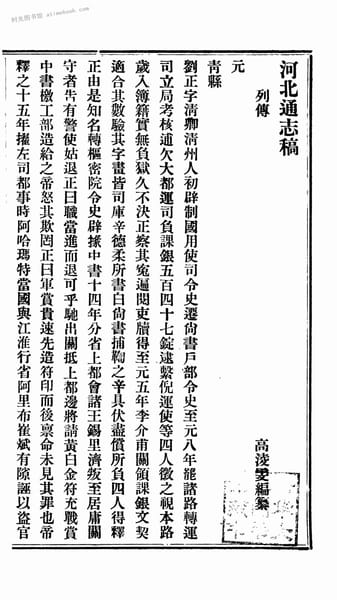 时光图书馆 atimebook.com
河北通志稿
列傳
高淩雯編纂
元
青縣
劉正字淸卿淸州人初辟制國用使司令史遷尙書戶部令史至元八年罷諸路轉運
司立局考核逋欠大都運司負課銀五百四十七錠逮繫倪運使等四人徵之視本路
歲入簿籍實無負獄久不決正察其寃遍閱吏牘得至元五年李介甫關領課銀文契
適合其數驗其字畫皆司庫辛德柔所書白尙書捕鞫之辛具伏盡償所負四人得釋
正由是知名轉樞密院令史辟掾中書十四年分省上都會諸王錫里濟叛至居庸關
守者吿有警使姑退正曰職當進而退可乎馳出關抵上都邊將請黃白金符充戰賞
中書檄工部造給之帝怒其欺罔正曰軍賞貴速先造符印而後禀命未見其罪也帝
釋之十五年擢左司都事時阿哈瑪特當國與江淮行省阿里布崔斌有隙誣以盜官